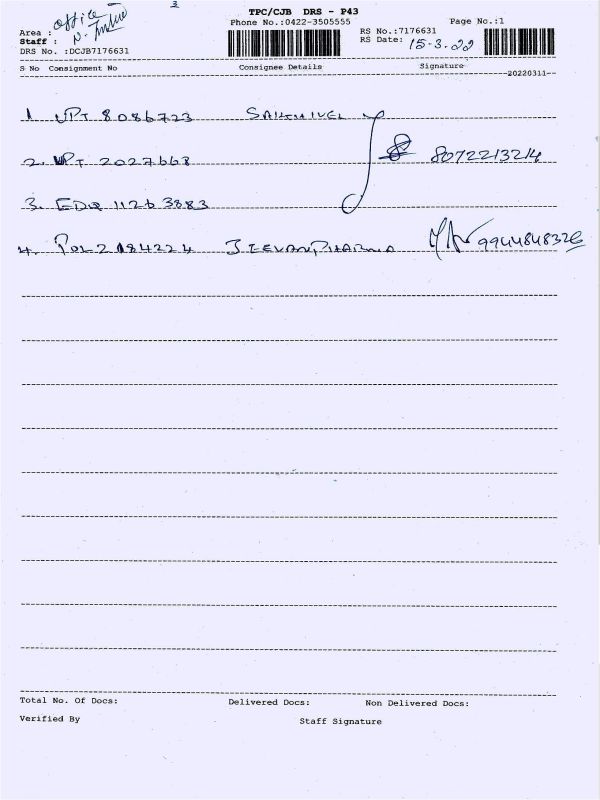 3
TPC/CJB DRS - P43
Phone No.:0422-3505555
Page No.:1
Area : office
RS No.:7176631
Staff : N.
RS Date: 15-3.22
DRS No. :DCJB7176631
S No Consignment No Consignee Details Signature
20220311
1 UPT 8086723 SAKTHIVEL
2. UPT 2027668 8072213214
3. EDQ 11263883
4. POL 2184224 JEEVANPHARMA 9944848326
Total No. Of Docs: Delivered Docs: Non Delivered Docs:
Verified By Staff Signature